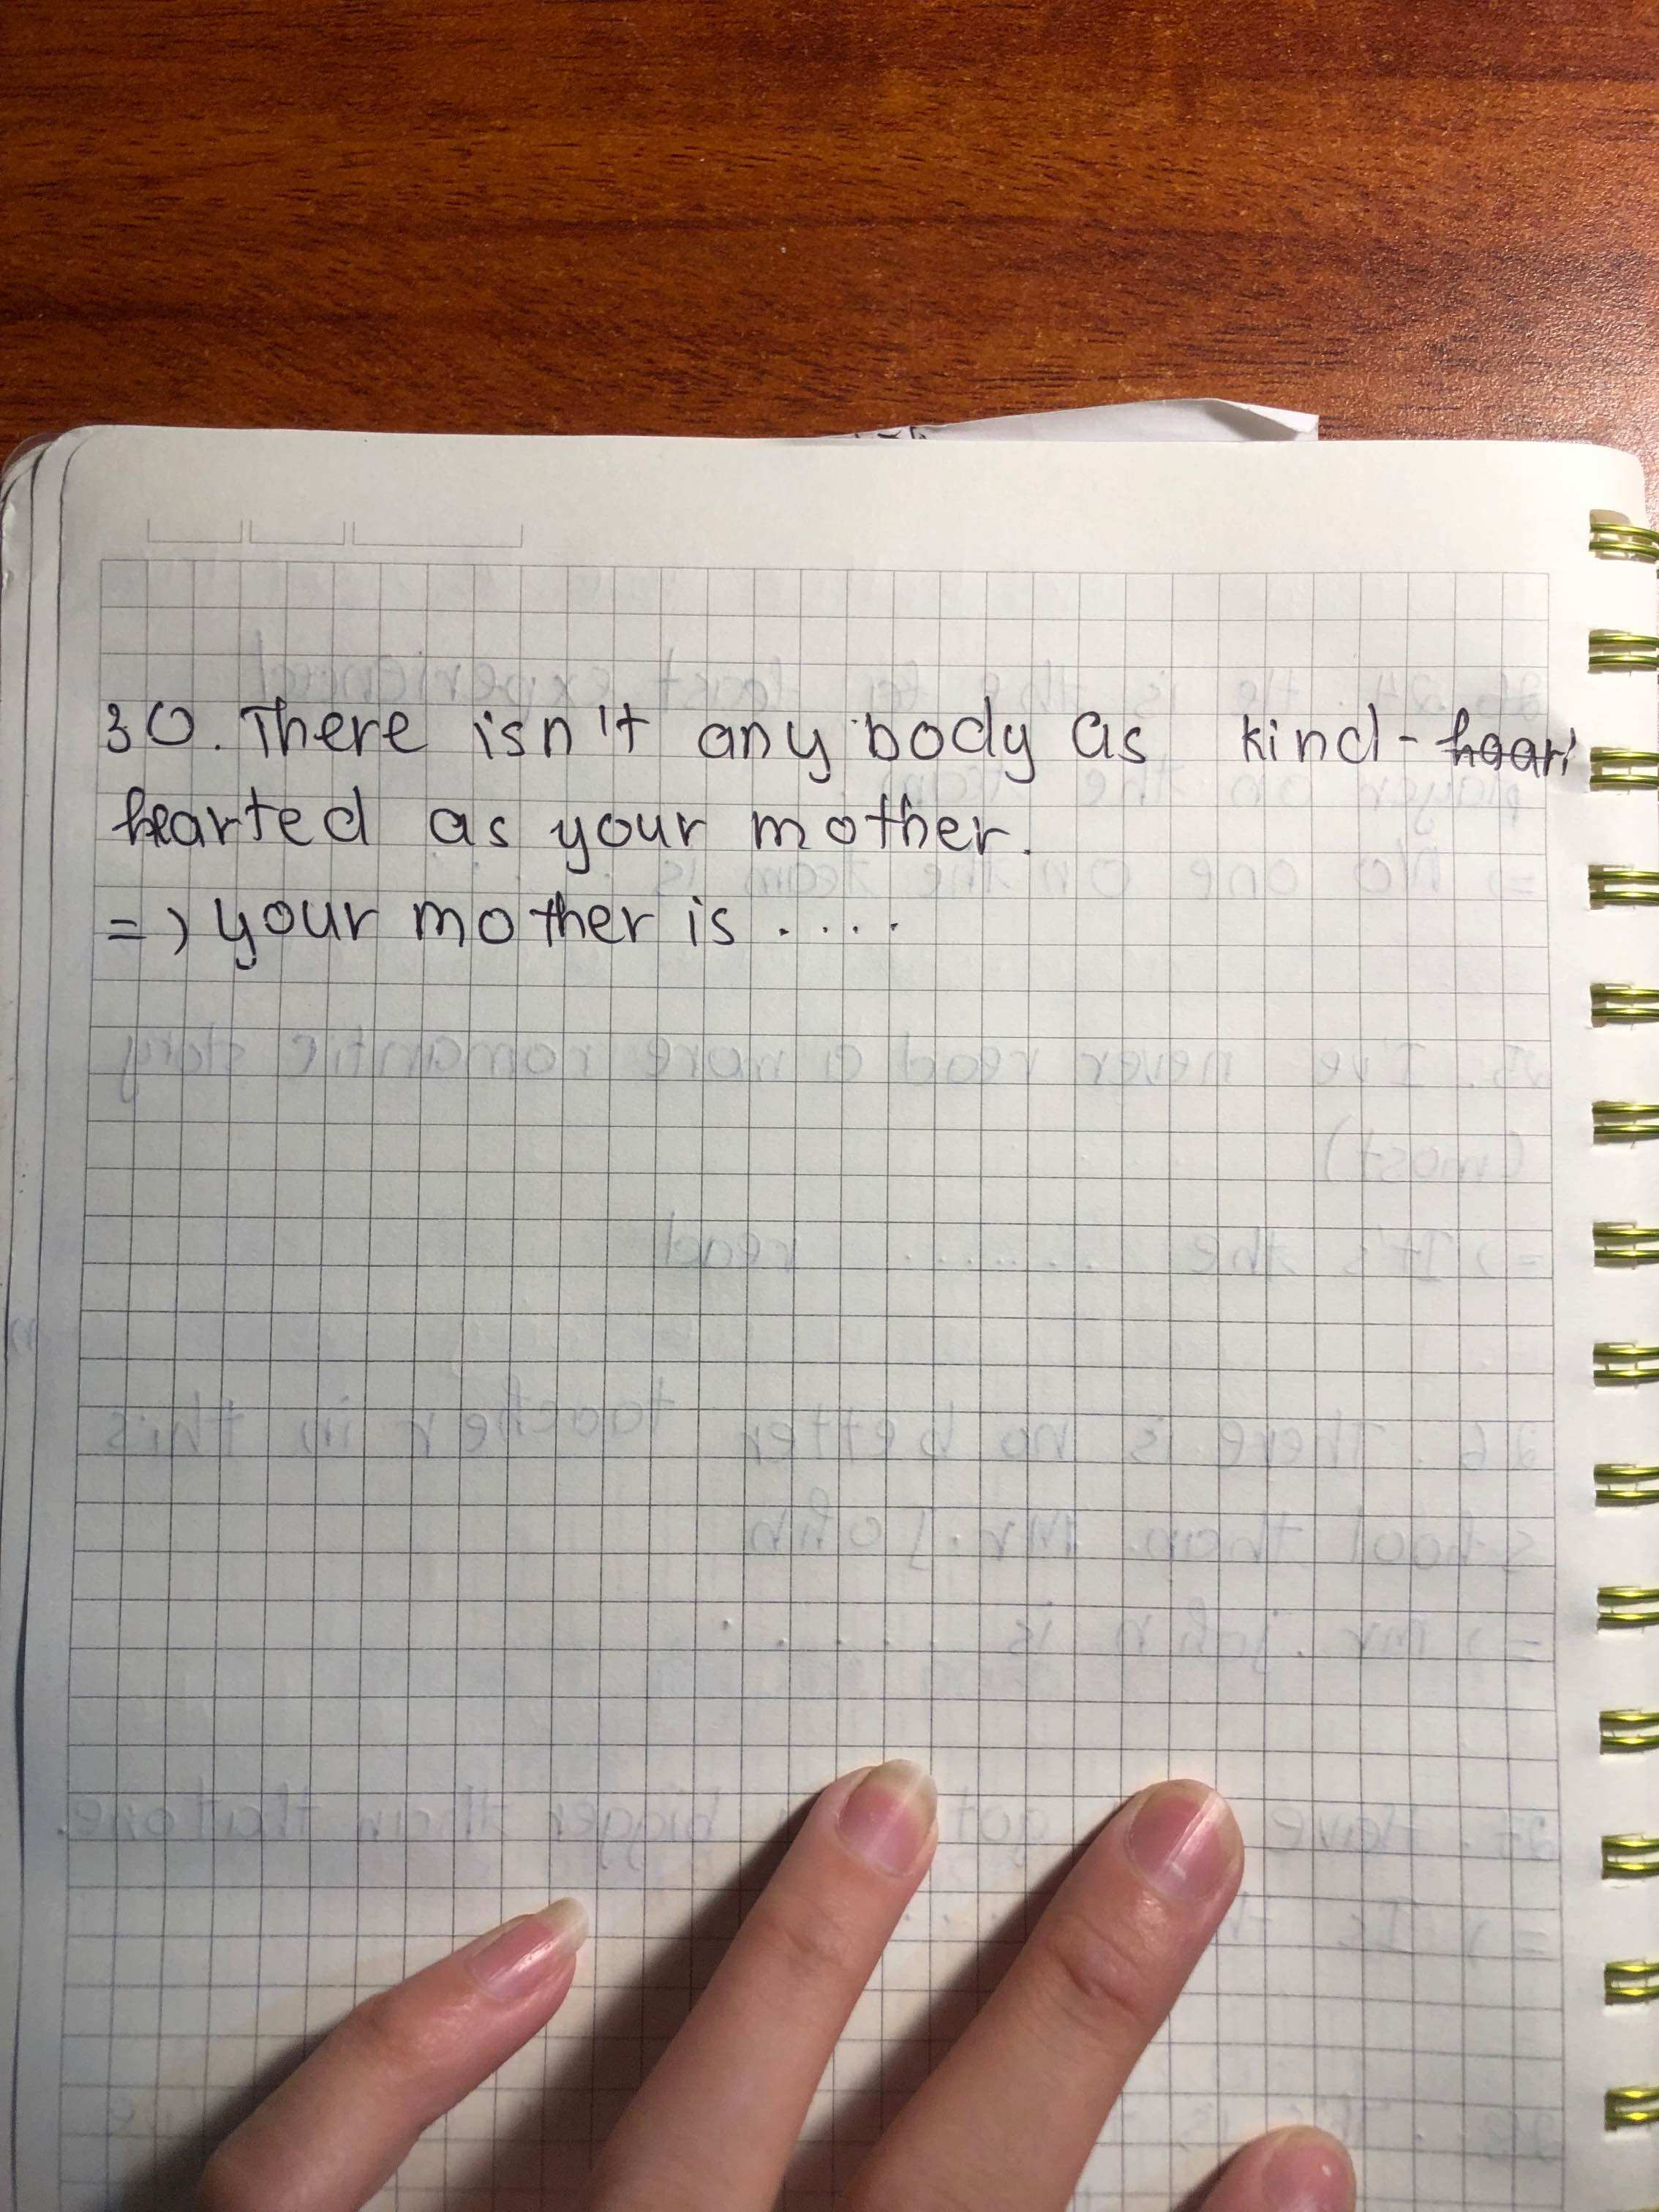 30. There isn't any body as kind-hear
hearted as your mother.
=> your mother is ....